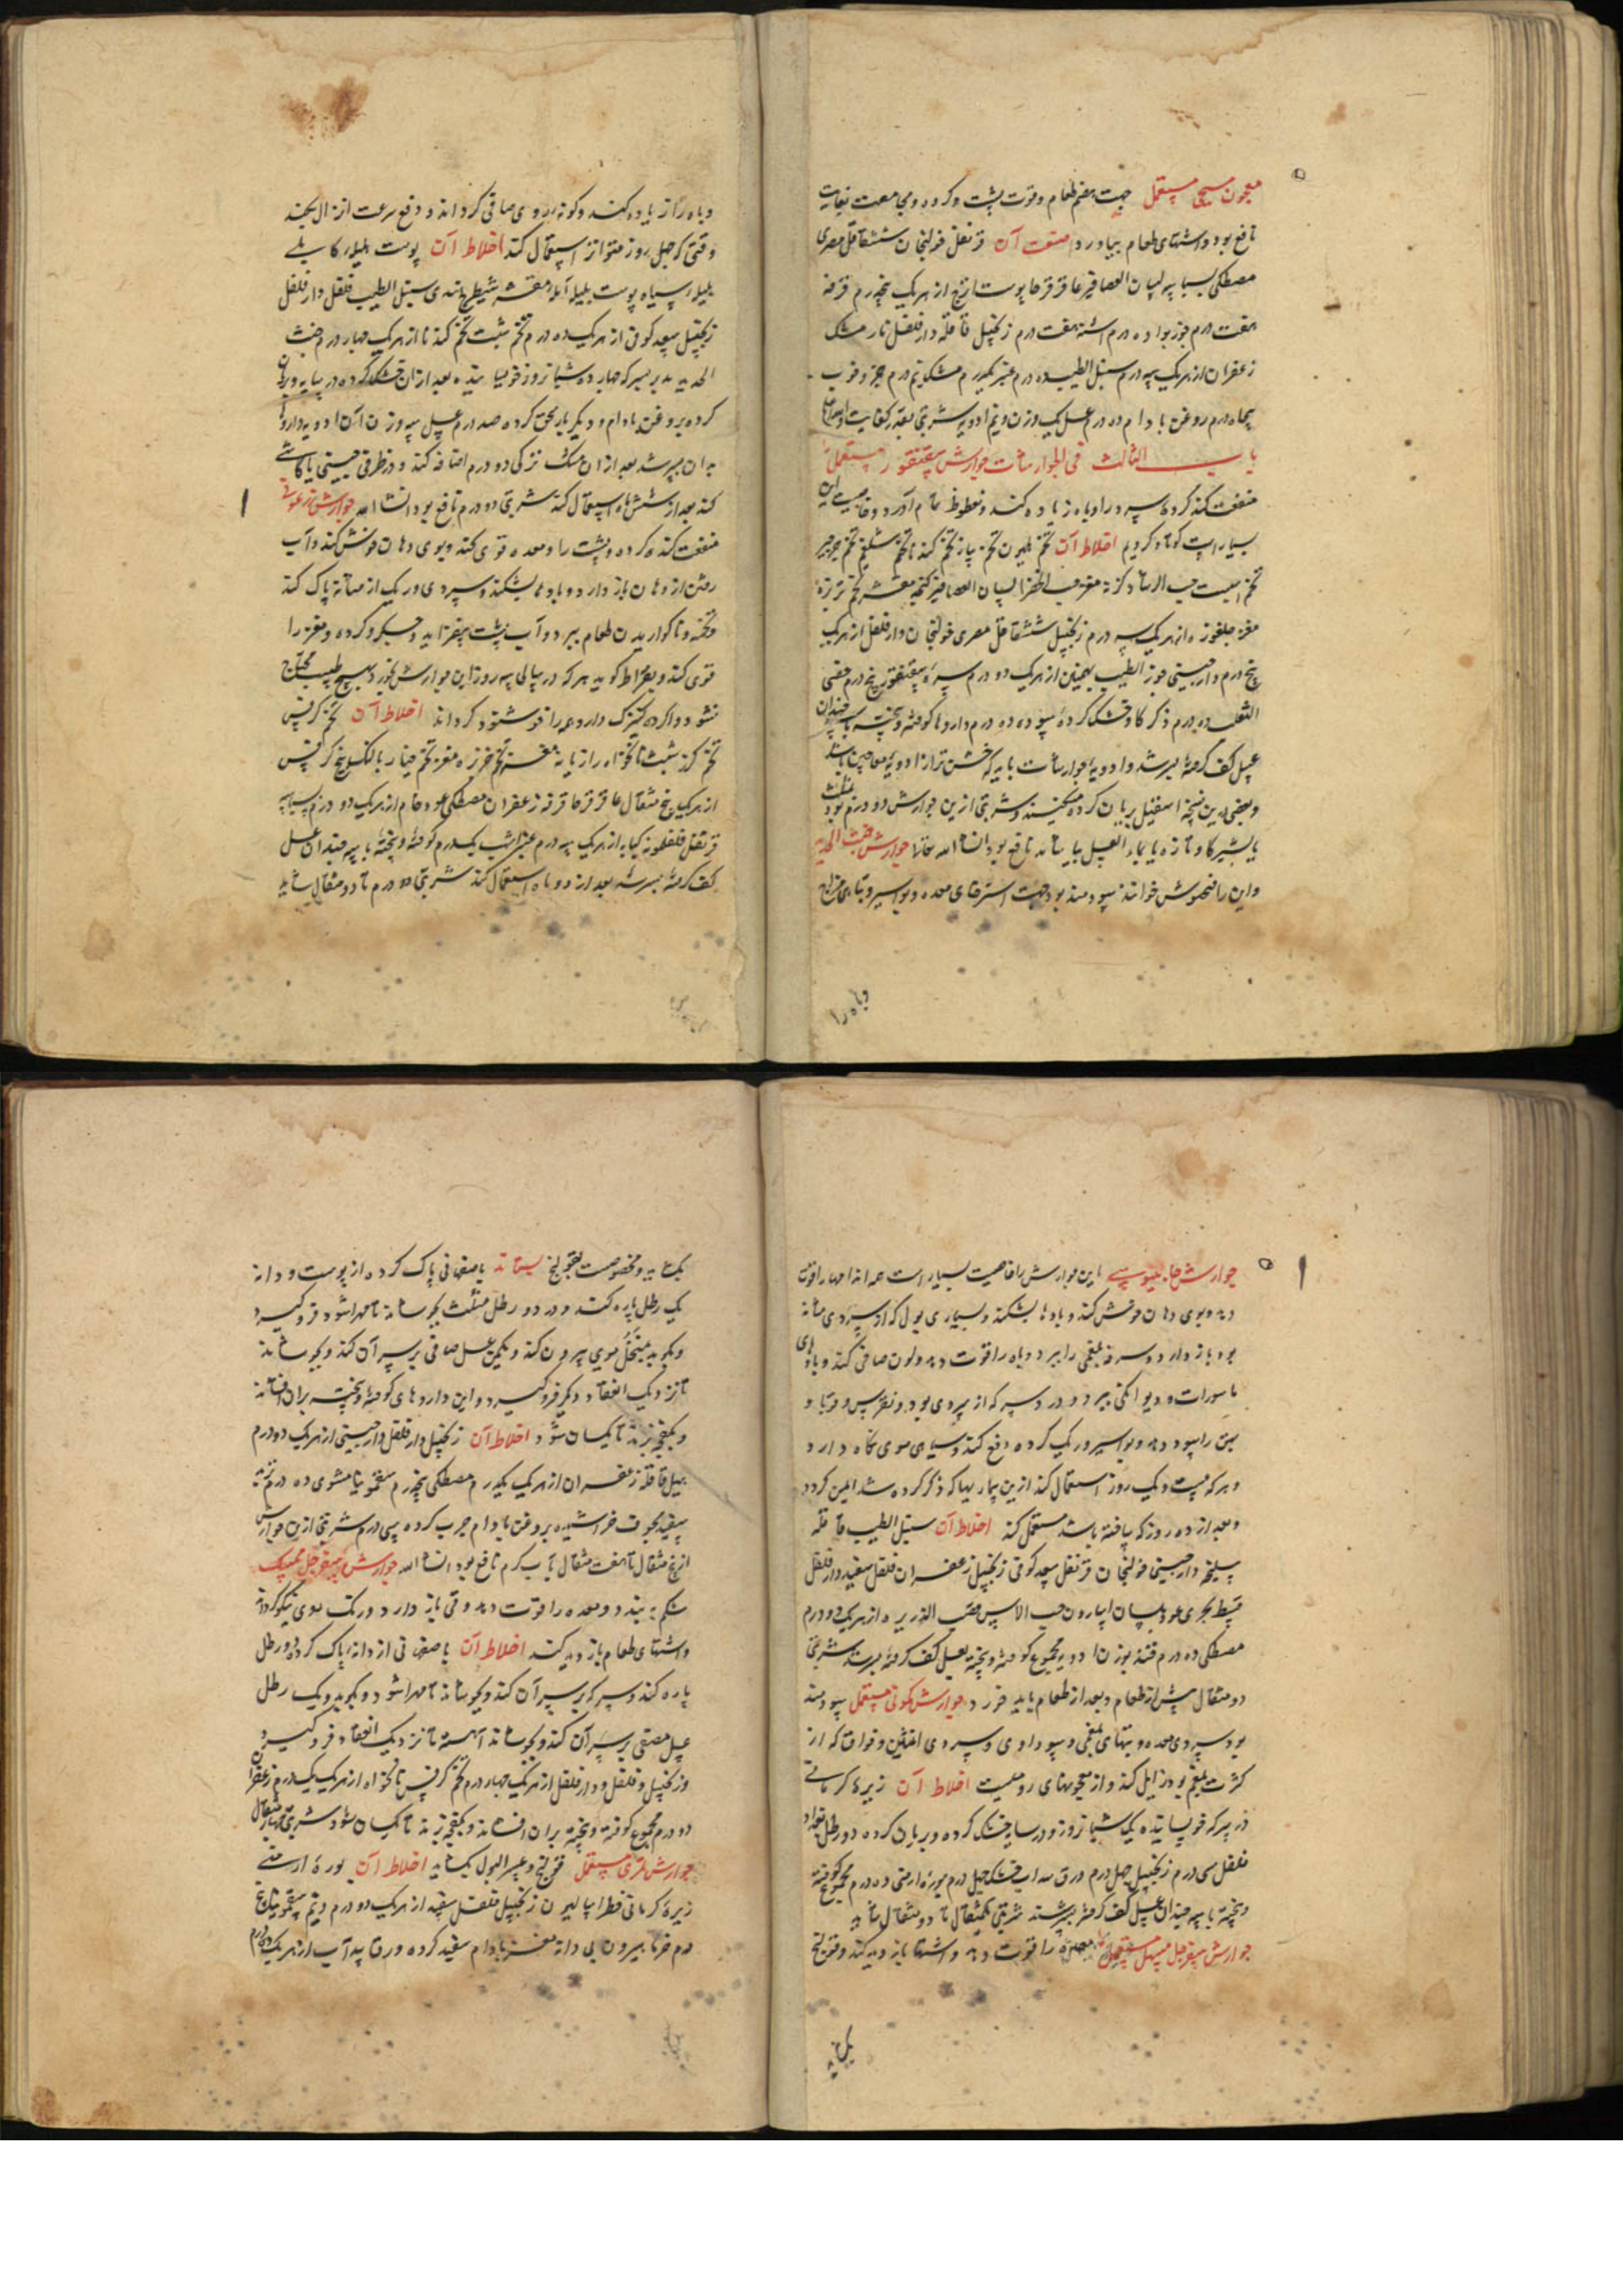 معجون مسیحی مستعمل جهت هضم طعام و قوت پشت و کرده و مجامعت بغایت
نافع بود و اشتهای طعام بیاورد صنعت آن قرنفل خولنجان ششقاقل مصری
مصطکی بسباسه لسان العصافیر عاقرقرحا پوست ازنج از هریک پنجدرم قرفه
هفت درم جوزبوا ده درم اشنه هفت درم زنجبیل قاقله دارفلفل نارمشک
زعفران از هریک سه درم سنبل الطیب ده درم عنبر یکدرم مشک نیم درم
پنجاه درم روغن بادام ده درم عسل یک وزن و نیم ادویه شربتی بقدر کفایت
باب الثالث فی الجوارشات جوارش سقنقور مستعمل
منفعت کند کرده سرد را و باه زیاده کند و نعوظ تمام آورد و خاصیت این
بسیار است کوتاه کردیم اخلاط آن تخم هلیون تخم پیاز تخم کندنا تخم شلغم تخم جرجیر
تخم اسپست حب الرشاد حبة الخضرا لسان العصافیر کنجد مقشر تخم ترتیزه
مغز جلغوزه از هریک سه درم زنجبیل ششقاقل مصری خولنجان دارفلفل از هریک
پنج درم دارچینی جوز الطیب بهمنین از هریک دو درم سره سقنقور پنج درم خصی
الثعلب ده درم ذکر کاو خشک کرده سوده ده درم داروها کوفته و بیخته با سه چندان
عسل کف کرفته بسرشد و ادویه جوارشات باید که خشن تر از ادویه معاجین باشد
و بعضی درین نسخه اسقیل بریان کرده میکنند و شربتی ازین جوارش دو درم بود
با شیر کاو تازه یا بماء العسل بباشاند نافع بود انشاء الله تعالی جوارش خبث الحدید
و این را فنجنوش خوانند سودمند بود جهت استرخای معده و بواسیر و تباهی مزاج
و باه را
و باه را زیاده کند و کونه روی صافی کرداند و دفع سرعت انزال بکند
وقتی که چهل روز متواتر استعمال کند اخلاط آن پوست هلیله کابلی
هلیله سیاه پوست بلیله آمله مقشر شیطرج هندی سنبل الطیب فلفل دارفلفل
زنجبیل سعد کوفی از هریک ده درم تخم شبت تخم کندنا از هریک چهار درم خبث
الحدید مدبر بسرکه چهارده شبانروز خوسانیده بعد ازان خشک کرده در سایه و بریان
کرده بروغن بادام و دیکر بار سحق کرده صد درم عسل سه وزن آن ادویه داروها
بدان بسرشد بعد ازان مشک ترکی دو درم اضافه کند و در ظرفی چینی یا کاشی
کند بعد از شش ماه استعمال کند شربتی دو درم نافع بود انشاء الله جوارش زرعونی
منفعت کند کرده و پشت را و معده قوی کند و بوی دهان خوش کند و آب
رفتن از دهان باز دارد و بادها بشکند و سردی و ریک از مثانه پاک کند
و تخمه و ناکواریدن طعام ببرد و آب پشت بیفزاید و جکر و کرده و مغز را
قوی کند و بقراط کوید هر که در سالی سه روز این جوارش بخورد بهیچ طبیب محتاج
نشود اخلاط آن تخم کرفس
تخم کزر شبت نانخواه رازیانه مغز تخم خربزه مغز تخم خیار بادرنک بیخ کرفس
از هریک پنج مثقال عاقرقرحا قرفه زعفران مصطکی عود خام از هریک دو درم بسباسه
قرنفل فلفلمویه کبابه از هریک سه درم عنبر اشهب یکدرم کوفته و بیخته با سه چندان عسل
کف کرفته بسرشد بعد از دو ماه استعمال کند شربتی دو درم تا دو مثقال شاید
جوارش جالینوسی این جوارش را خاصیت بسیار است همه اندامها را قوت
دهد و بوی دهان خوش کند و بادها بشکند و بسیاری بول که از سردی مثانه
بود باز دارد و سرفه بلغمی را ببرد و باه را قوت دهد و لون صافی کند و بادهای
ناسورات و دیوانکی ببرد و درد سر که از سردی بود و نقرس و قوبا و
بهق را سود دهد و بواسیر و ریک کرده دفع کند و سیاهی موی نکاه دارد
و هر که بیست و یک روز استعمال کند ازین بیماریها که ذکر کرده شد ایمن کردد
و بعد از ده روز که یافته باشد مستعمل کند اخلاط آن سنبل الطیب قاقله
سلیخه دارچینی خولنجان قرنفل سعد کوفی زنجبیل زعفران فلفل سفید دارفلفل
قسط بحری عود بلسان اسارون حب الآس قصب الذریره از هریک دو درم
مصطکی ده درم قند بوزن ادویه مجموع کوفته و بیخته بعسل کف کرفته بسرشد شربتی
دو مثقال پیش از طعام و بعد از طعام باید خورد جوارش کمونی مستعمل سودمند
بود سردی معده و تبهای بلغمی و سوداوی و سردی انثیین و فواق که از
کثرت بلغم بود زایل کند و از معجونهای رومیست اخلاط آن زیره کرمانی
در سرکه خوسانیده یک شبانروز و در سایه خشک کرده و بریان کرده دو رطل بغداد
فلفل سی درم زنجبیل چهل درم ورق سداب خشک چهل درم بوره ارمنی ده درم مجموع کوفته
و بیخته با سه چندان عسل کف کرفته بسرشند شربتی یکمثقال تا دو مثقال شاید
جوارش سفرجل مسهل مستعمل معده را قوت دهد و اشتها باز دید کند و قولنج
بکشاید
بکشاید و مخصوصست بقولنج بستاند به اصفهانی پاک کرده از پوست و دانه
یک رطل پاره کند و در دو رطل مثلث بجوشاند تا مهرا شود فرو کیرد
و بکوبد بمنخل موی بیرون کند و یکمن عسل صافی بر سر آن کند و بجوشاند
تا نزدیک انعقاد و دیکر فرو کیرد و این داروهای کوفته و بیخته بران افشاند
و بکفچه بزند تا یکسان شود اخلاط آن زنجبیل دارفلفل دارچینی از هریک دو درم
هیل قاقله زعفران از هریک یکدرم مصطکی پنجدرم سقمونیا مشوی ده درم تربد
سفید مجوف خراشیده بروغن بادام چرب کرده سی درم شربتی ازین جوارش
از پنج مثقال تا هفت مثقال بآب کرم نافع بود انشاء الله جوارش سفرجل ممسک
شکم ببندد و معده را قوت دهد و قی باز دارد و رنک روی نیکو کرداند
و اشتهای طعام باز دید کند اخلاط آن به اصفهانی از دانه پاک کرده دو رطل
پاره کند و سرکه بر سر آن کند و بجوشاند تا مهرا شود و بکوبد و یک رطل
عسل مصفی بر سر آن کند و بجوشاند آهسته تا نزدیک انعقاد فرو کیرد
و زنجبیل و فلفل و دارفلفل از هریک چهار درم تخم کرفس نانخواه از هریک یک درم زعفران
دو درم مجموع کوفته و بیخته بران افشاند و بکفچه بزند تا یکسان شود شربتی چهار مثقال
جوارش تمری مستعمل قولنج و عسر البول بکشاید اخلاط آن بوره ارمنی
زیره کرمانی فطراسالیون زنجبیل فلفل سفید از هریک دو درم و نیم سقمونیا پنج
درم خرما بیرون بی دانه مغز بادام سفید کرده ورق سداب از هریک ده درم